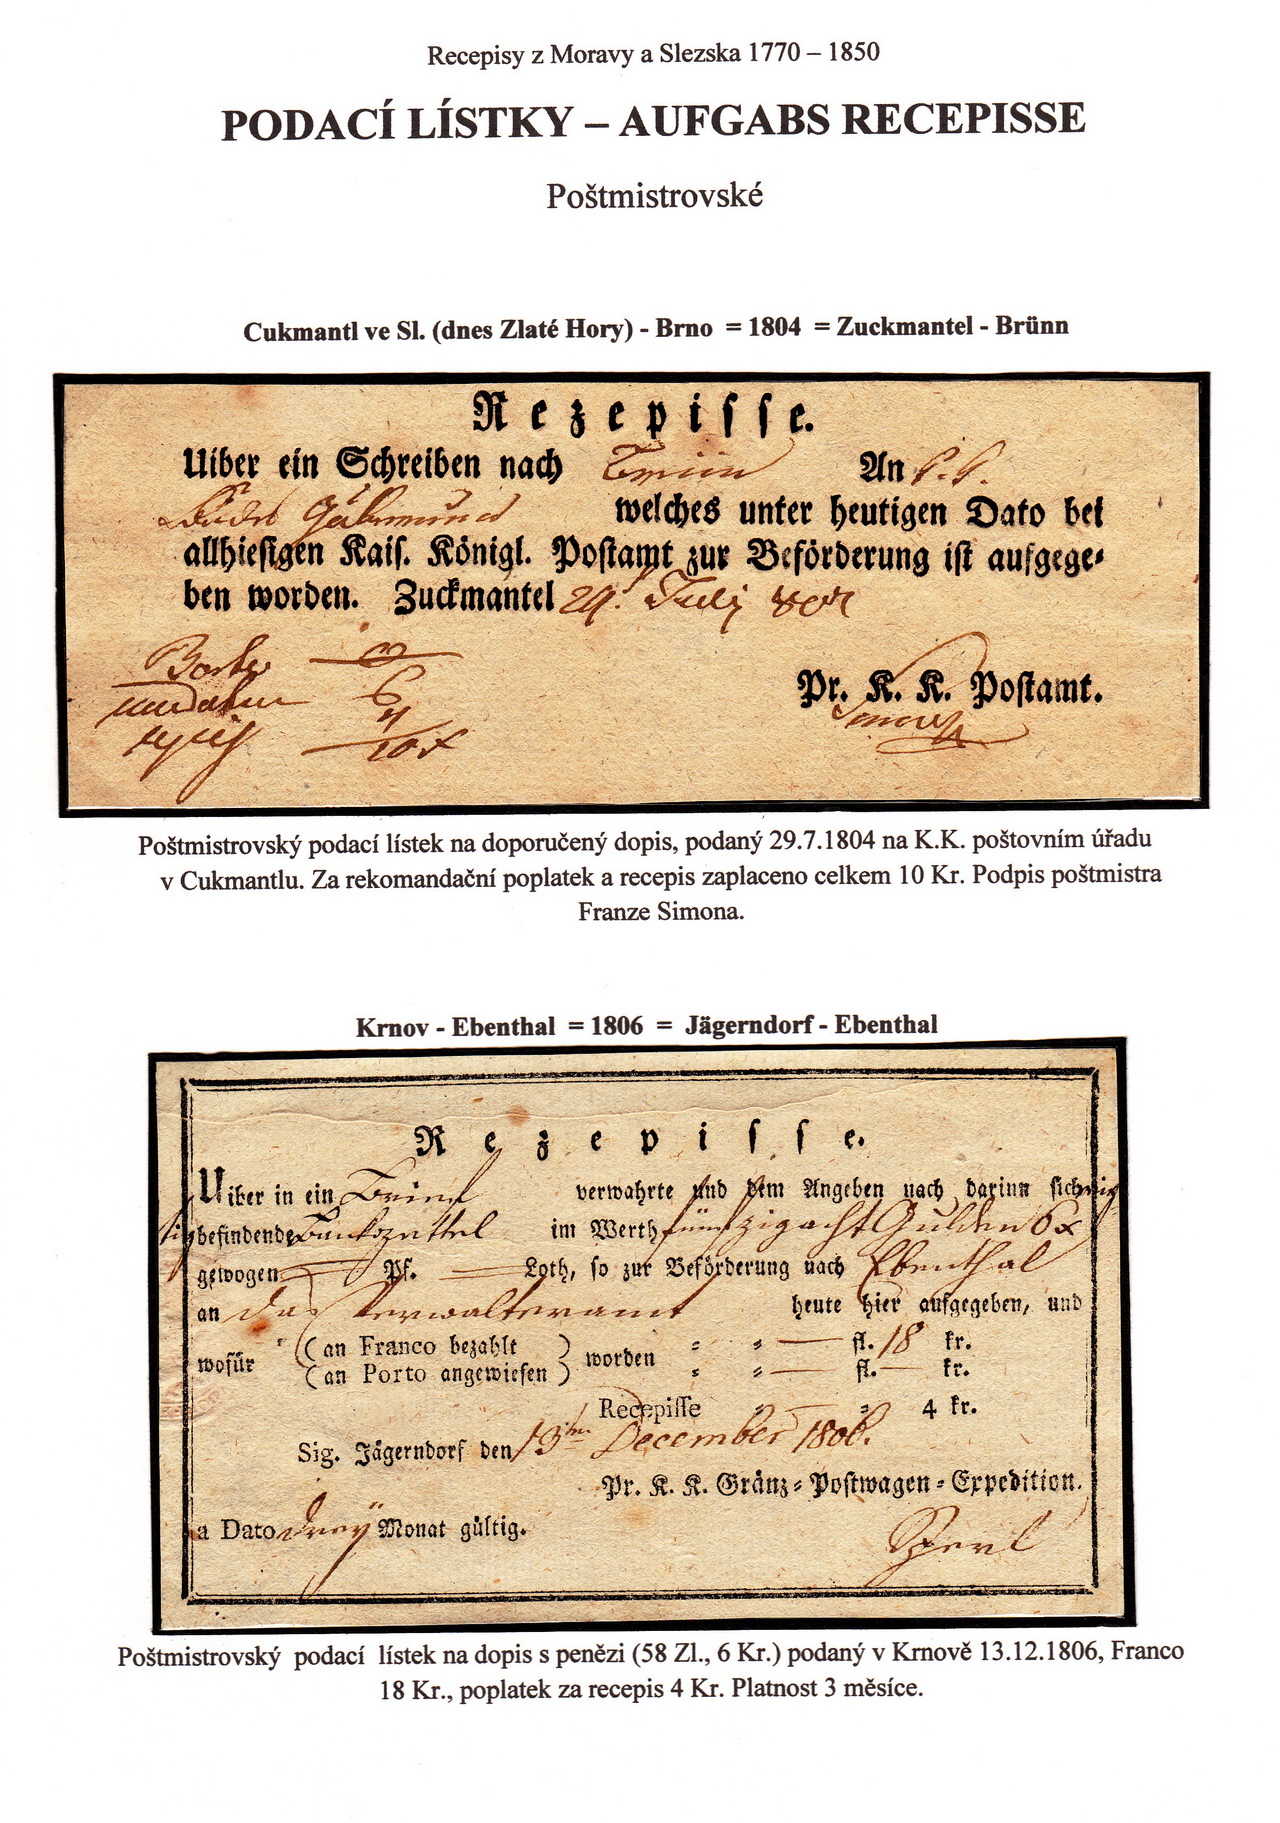 Recepisy z Moravy a Slezska 1770 – 1850
PODACÍ LÍSTKY – AUFGABS RECEPISSE
Poštmistrovské
Cukmantl ve Sl. (dnes Zlaté Hory) - Brno = 1804 = Zuckmantel - Brünn
Rezepisse.
Uiber ein Schreiben nach Brünn An
welches unter heutigen Dato bei
allhiesigen Kais. Königl. Postamt zur Beförderung ist aufgege-
ben worden. Zuckmantel 29. July
6
4
10 x
Pr. K. K. Postamt.
Poštmistrovský podací lístek na doporučený dopis, podaný 29.7.1804 na K.K. poštovním úřadu
v Cukmantlu. Za rekomandační poplatek a recepis zaplaceno celkem 10 Kr. Podpis poštmistra
Franze Simona.
Krnov - Ebenthal = 1806 = Jägerndorf - Ebenthal
Rezepisse.
Uiber in ein verwahrte und dem Angeben nach darinn sich
befindende Bankozettel im Werth fünfzig acht Gulden 6 x
gewogen Pf. Loth, so zur Beförderung nach Ebenthal
an das Verwalteramt heute hier aufgegeben, und
wofür (an Franco bezahlt) worden fl. 18 kr.
(an Porto angewiesen) fl. — kr.
Recepisse 4 kr.
Sig. Jägerndorf den 13ten December 1806.
Pr. K. K. Gränz-Postwagen-Expedition.
a Dato drey Monat gültig.
Poštmistrovský podací lístek na dopis s penězi (58 Zl., 6 Kr.) podaný v Krnově 13.12.1806, Franco
18 Kr., poplatek za recepis 4 Kr. Platnost 3 měsíce.